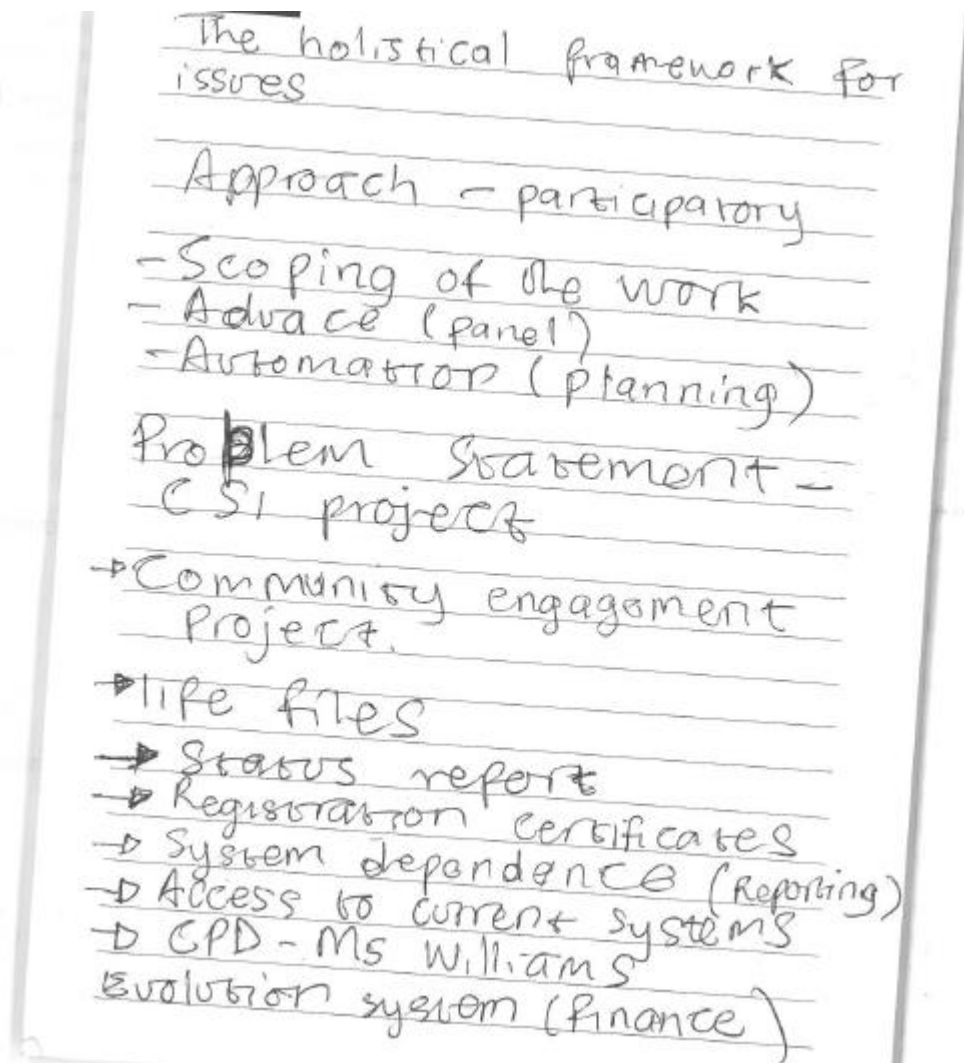 The holistical framework for
issues
Approach - participatory
- Scoping of the work
- Advace (panel)
- Automation (planning)
Problem Statement -
CSI project
→ Community engagement
Project.
→ life files
→ Status report
→ Registration certificates
→ System dependence (Reporting)
→ Access to current systems
→ CPD - Ms Williams
Evolution system (finance)